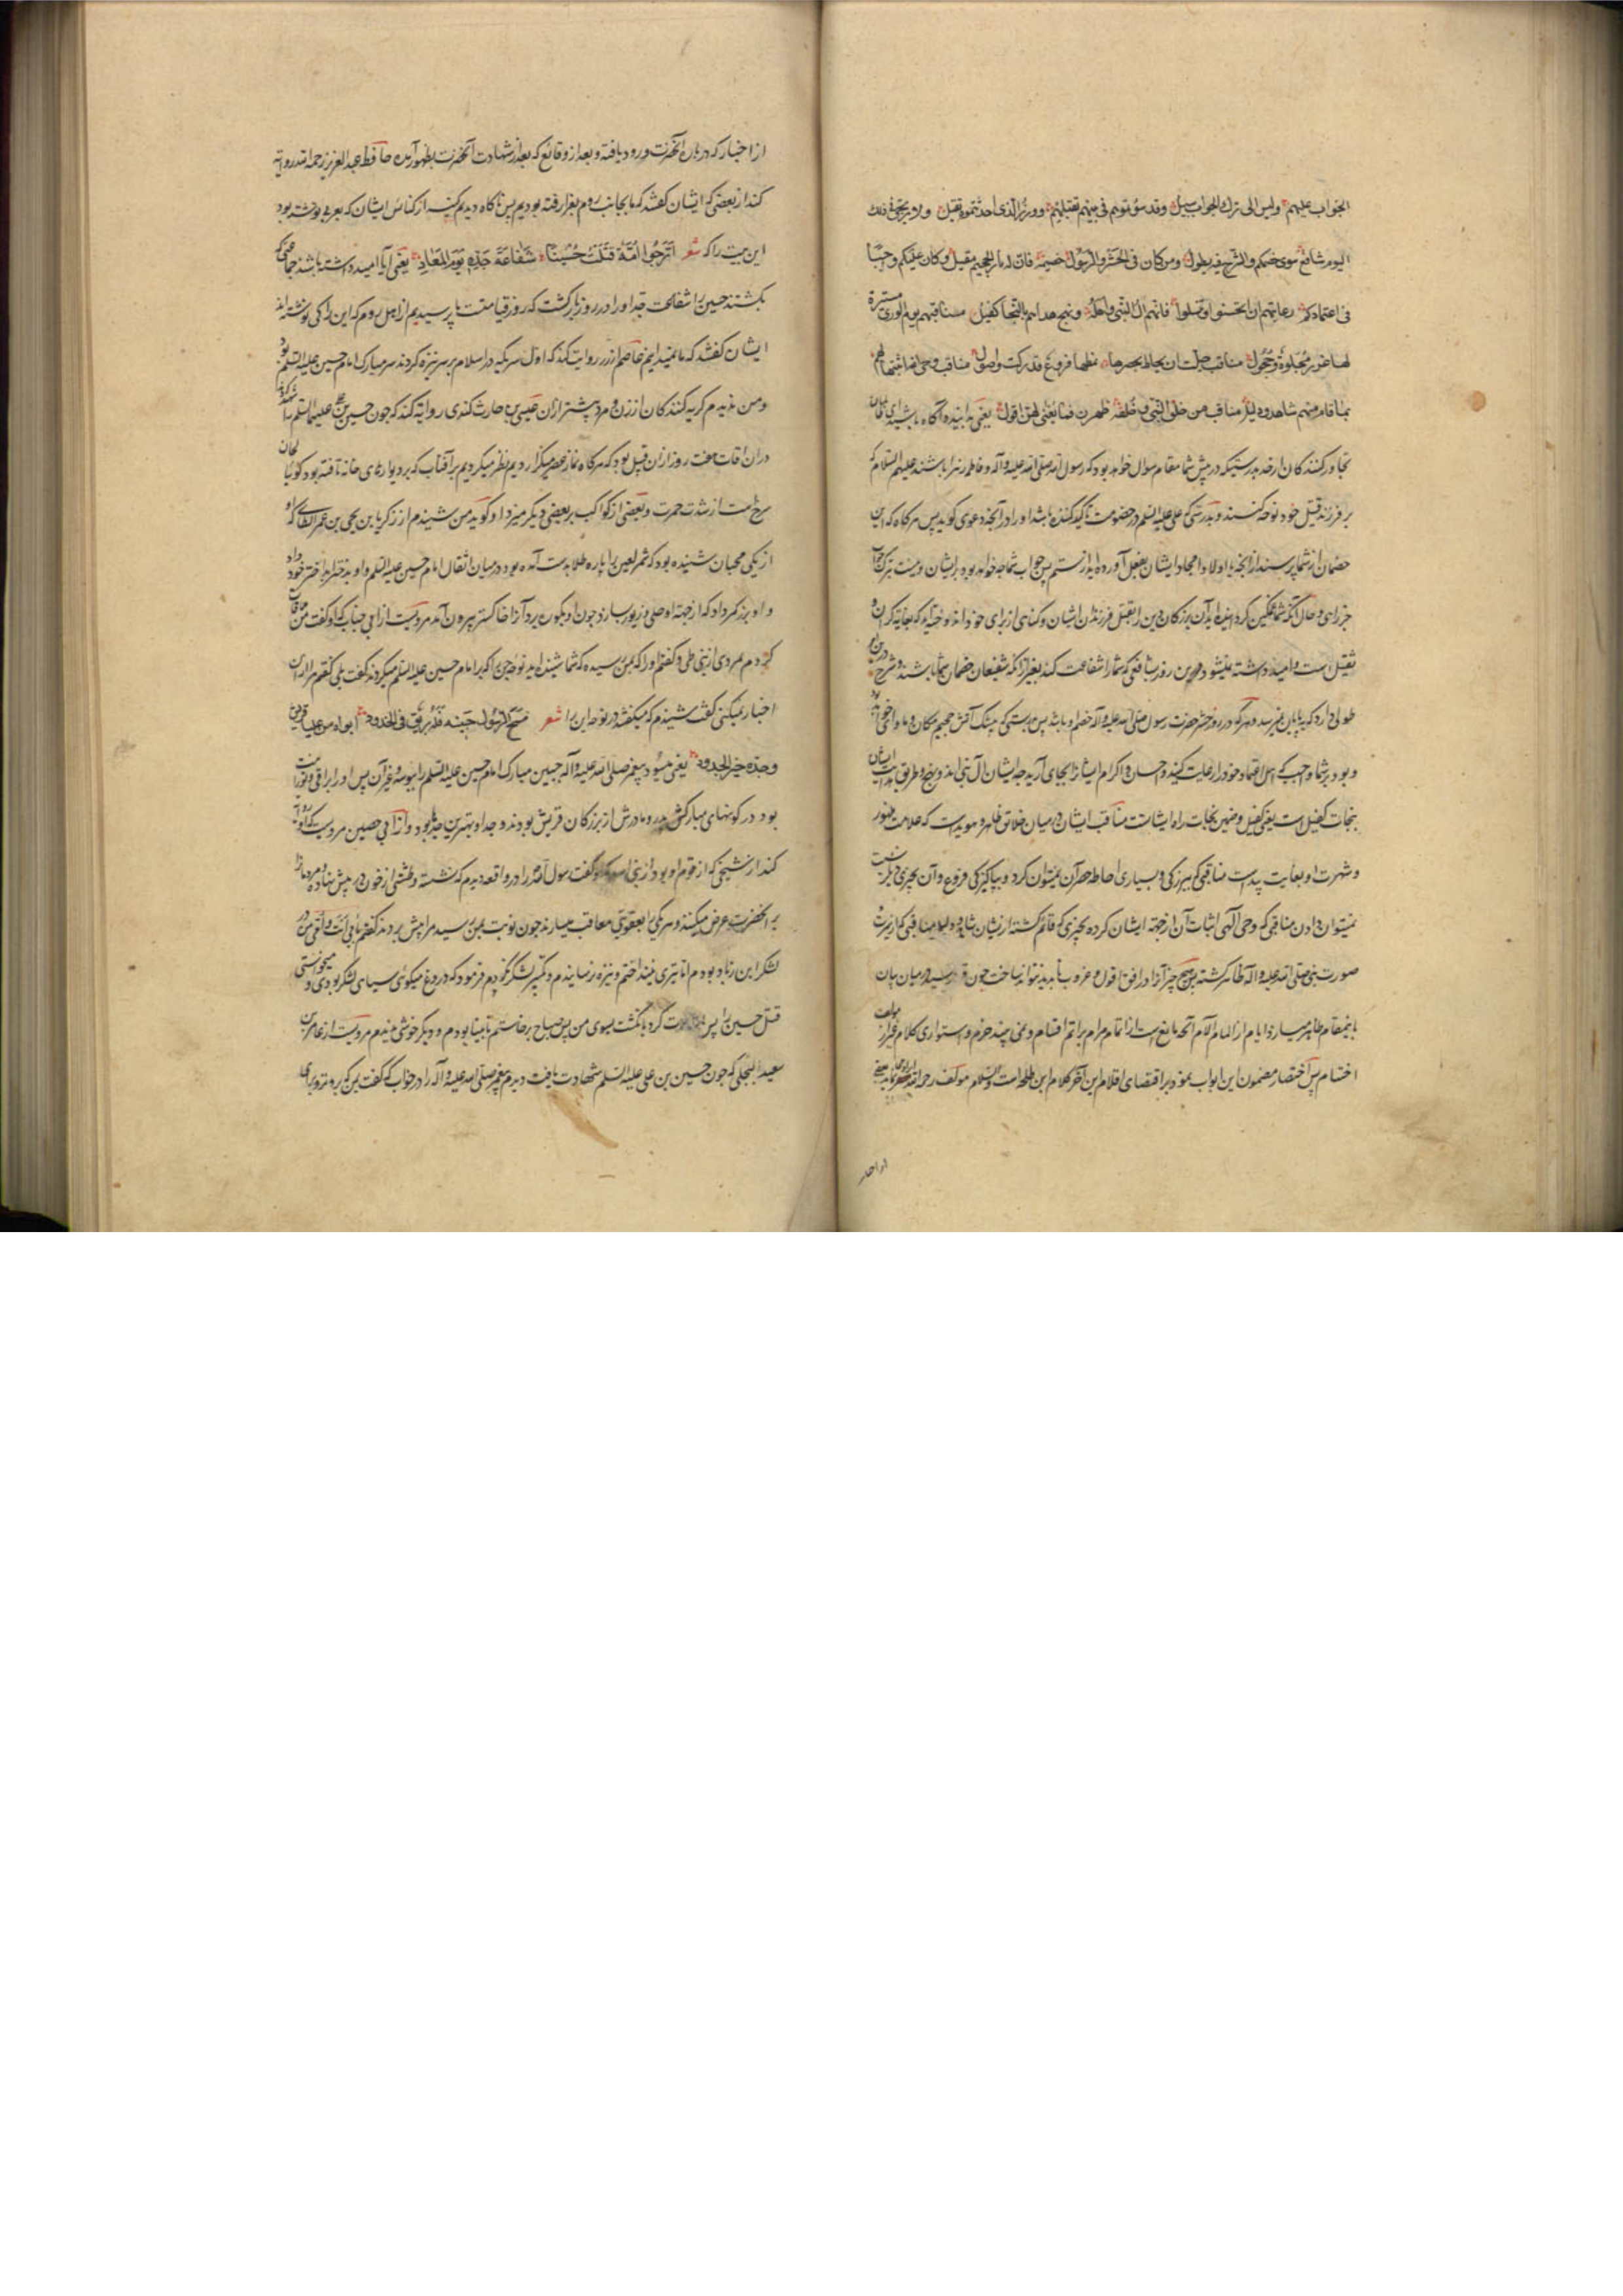 الجواب علیهم ولیس الی ترک الجواب سبیل وقد سؤتموهم فی بنیهم تقتلهم ووزر الذی احدثتموه ثقیل ولا یرتجی فی ذلک
الیوم شافع سوی خصمکم والشرح فیه یطول ومن کان فی الحشر الرسول خصیمه فان له نار الجحیم مقیل وکان علیکم واجبا
فی اعتمادکم رعایتهم ان تحسنوا وتنیلوا فانهم آل النبی واهله ونهج هداهم بالنجاة کفیل مناقبهم بین الوری مستنیرة
لها غرر مجلوة وحجول مناقب جلت ان یحاط بحصرها فروع قد زکت واصول مناقب وحی الله اثبتها لهم
بما قام منهم شاهد ودلیل مناقب من خلق النبی وخلقه ظهرن فما یغنی لهن افول یعنی بدانید و آگاه باشید ای
تجاوز کنندکان از حد بدرستیکه در پیش شما مقام سوال خواهد بود که رسول الله صلی الله علیه و آله و فاطمه زهرا باشند علیهم السلام که
بر فرزند قتیل خود نوحه کنند و بدرستی که علی علیه السلام در خصومت تأکید کننده باشد او را در آنچه دعوی کوید پس هرکاه که این
خصمان از شما پرسند از آنچه با اولاد و امجاد ایشان بفعل آورده اید از ستم پس جواب شما چه خواهد بود بر ایشان و نیست بترک جواب
چرا و حال آنکه شما غمکین کردانیده اید آن بزرکان دین را بقتل فرزندان ایشان و کناهی از برای خود اندوخته اید که بغایت کران و
ثقیل است و امید داشته نمیشود درین روز شافعی که شما را شفاعت کند بغیر از آنکه شفیعان خصمان شما باشند و شرح درین
طولی دارد که بپایان نمیرسد و هر که در روز حشر حضرت رسول صلی الله علیه و آله خصم او باشد پس بدرستی که بیشک آتش جحیم مکان و ماوای
و بود بر شما واجب که اهل اعتماد خود را رعایت کنید و احسان و اکرام ایشان را بجای آرید چه ایشان آل نبی اند و نهج و طریق هدایت ایشان
بنجات کفیل است یعنی کفیل و ضمین نجات راه ایشانست مناقب ایشان در میان خلایق ظاهر و هویداست که علامت ظهور
و شهرت او بغایت پیداست مناقبی که ببزرکی و بسیاری احاطه حصر آن نمیتوان کرد و بپاکیزکی فروع و آن بچیزی دیکر نسبت
نمیتوان دادن مناقبی که وحی الهی اثبات آن از جهت ایشان کرده بچیزی که قائم کشته از ایشان شاهد و دلیل مناقبی که از سیرت و
صورت نبی صلی الله علیه و آله ظاهر کشته پس هیچ چیز آنرا در افق افول و غروب ناپدید نتواند ساخت چون قلم رسید در میدان بیان
باینمقام
اختتام پس اختصار مضمون این ابواب نمود بر اقتضای اقلام این آخر کلام ابن طلحه است والسلام مولف رحمه الله
از اخبار
از اخبار که درباره آنحضرت ورود یافته و بعد از وقائع که بعد از شهادت آنحضرت بظهور آمده حافظ عبدالعزیز رحمه الله روایت
کند از بعضی که ایشان کفتند که ما بجانب روم بغزا رفته بودیم پس ناکاه دیدیم کنیسه از کنائس ایشان که بعربی نوشته بود
این بیت را که شعر اترجوا امة قتلت حسینا شفاعة جده یوم المعاد یعنی آیا امید داشته باشند جماعتی که
بکشتند حسین را شفاعت جد او را در روز بازکشت که روز قیامتست ما پرسیدیم از اهل روم که این را کی نوشته اند
ایشان کفتند که ما نمیدانیم عاصم از زر روایت کند که اول سری که در اسلام بر سر نیزه کردند سر مبارک امام حسین علیه السلام بود
و من ندیدم کریه کنندکان از زن و مرد بیشتر از آن عیسی بن حارث کندی روایت کند که چون حسین بن علی علیهما السلام را
در آن اوقات هفت روز از آن قبیل بود که هر کاه نماز عصر میکزاردیم نظر میکردیم بر آفتاب که بر دیوارهای خانه تافته بود کوئیا
سرخست از شدت حمرت و بعضی از کواکب بر بعضی دیکر میزد او کوید من شنیدم از زکریا بن یحیی بن عمر الطائی که او
از یکی محبان شنیده بود که شمر لعین را پاره طلا بدست آمده بود در میان اثقال امام حسین علیه السلام و او بدختر خود داد
و او بزرکر داد که از جهت او حلی و زیور سازد چون او بکون برد آنرا خاکستر بیرون آمد مرویست از ابی جناب که او کفت من ملاقات
کردم بمردی از بنی طی و کفتم او را که بمن رسیده که شما شنیده اید نوحه جن را که بر امام حسین علیه السلام میکردند کفت بلی کفتم مرا از آن
اخبار نمیکنی کفت شنیدم که میکفتند در نوحه این را شعر مسح الرسول جبینه فله بریق فی الخدود ابواه من علیا قریش
وجده خیر الجدود یعنی میسود پیغمبر صلی الله علیه و آله جبین مبارک امام حسین علیه السلام را پس او را براقی و نورانیت
بود در کونهای مبارکش پدر و مادرش از بزرکان قریش بودند و جد او بهترین جدها بود و از ابی حصین مرویست که او روایت
کند از شیخی که از قوم او بود از بنی اسد که او کفت رسول الله را در واقعه دیدم که نشسته و طشتی از خون در پیش نهاده مردمان را
بر آنحضرت عرض میکنند و هر یکی را بعقوبتی معاقب میسازند چون نوبت بمن رسید مرا پیش بردند کفتم بابی انت و امی من در
لشکر ابن زیاد بودم اما تیری نینداختم و نیزه نرسانیدم و تکثیر لشکر نکردم فرمود که دروغ میکوئی سیاهی لشکر بودی و میخواستی
قتل حسین را پس اشارت کرد بانکشت بسوی من پس صباح برخاستم نابینا بودم و دیکر خوشی ندیدم مرویست از عامر بن
سعید البجلی که چون حسین بن علی علیه السلام شهادت یافت دیدم پیغمبر صلی الله علیه و آله را در خواب که کفت بمن که برو نزد براء